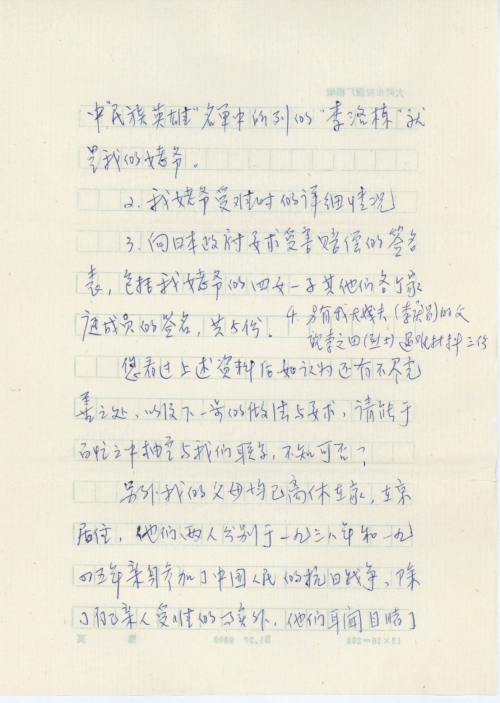 中“民族英雄”名单中所列的“李洛栋”就
是我的姥爷。
2. 我姥爷受难时的详细情况
3. 向日本政府要求受害赔偿的签名
表，包括我姥爷的四女一子其他们各个家
庭成员的签名，共5份。
4. 另有我大姨夫的父
亲李之四(烈士)遇难材料三份
您看过上述资料后如认为还有不尽完
善之处，以及下一步的做法与要求，请能于
百忙之中抽空与我们联系，不知可否？
另外我的父母均已离休在家，在京
居住，他们两人分别于一九三八年和一九
四五年亲身参加了中国人民的抗日战争，除
了自己亲人受难的事实外，他们耳闻目睹了